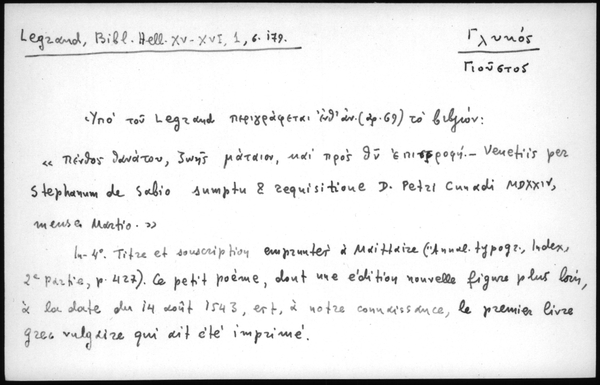 Legrand, Bibl. Hell. XV-XVI, 1, σ. 179.
Γλυκός
Γιοῦστος
Ὑπό τοῦ Legrand περιγράφεται ἐνθ' ἀν. (ἀρ. 69) τὸ βιβλίον:
« Πένθος θανάτου, ζωῆς μάταιον, καὶ πρὸς θν̄ ἐπιστροφή.- Venetiis per
Stephanum de Sabio sumptu & requisitione D. Petri Cunadi MDXXIV,
mense Martio. »
In-4°. Titre et souscription empruntés à Maittaire (Annal. typogr., Index,
2e partie, p. 427). Ce petit poème, dont une édition nouvelle figure plus loin,
à la date du 14 août 1543, est, à notre connaissance, le premier livre
grec vulgaire qui ait été imprimé.